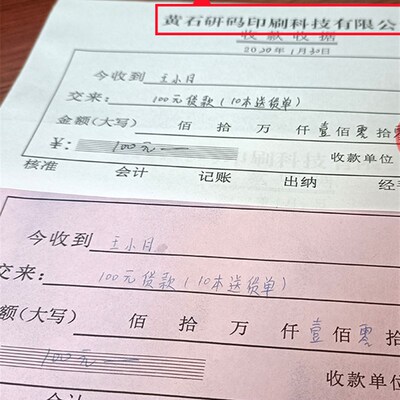 黄石研码印刷科技有限公
收款收据
2020年1月30日
今收到 王小月
交来： 100元货款（10本送货单）
金额(大写) 佰 拾 万 仟 壹 佰 零 拾
¥： 100元
收款单位
核准 会计 记账 出纳 经
今收到 王小月
交来： 100元货款（10本送货单）
额(大写) 佰 拾 万 仟 壹 佰 零
100元
收款单